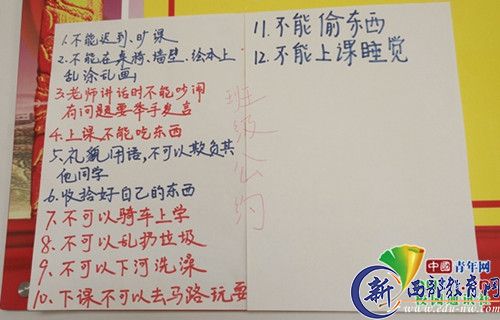 1.不能迟到、旷课
2.不能在桌椅、墙壁、绘本上
乱涂乱画
3.老师讲话时不能吵闹
有问题要举手发言
4.上课不能吃东西
5.礼貌用语,不可以欺负其
他同学
6.收拾好自己的东西
7.不可以骑车上学
8.不可以乱扔垃圾
9.不可以下河洗澡
10.下课不可以去马路玩耍
班级公约
11.不能偷东西
12.不能上课睡觉
中國青年网
新西部教育网
www.edu-nw.com